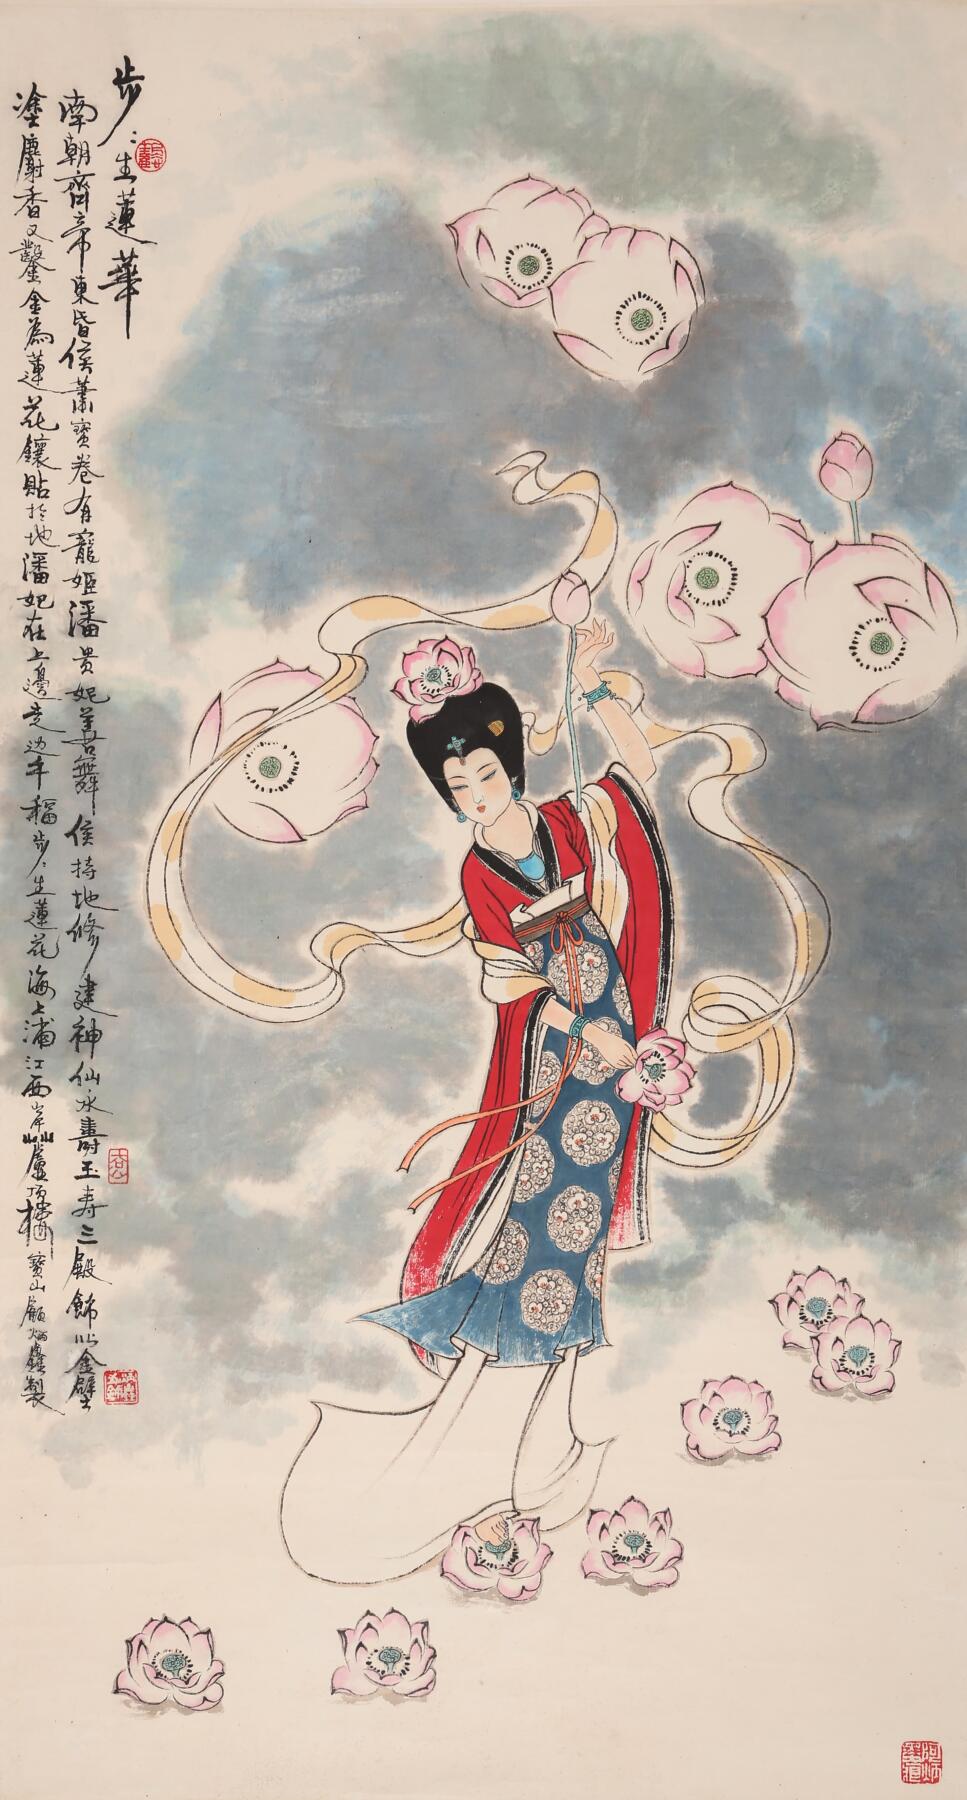 步〻生蓮華
南朝齊帝東昏侯蕭寶卷有寵姬潘貴妃善舞侯持地修建神仙永壽玉寿三殿飾以金壁
塗麝香又鑿金為蓮花鑲貼於地潘妃在上邊走边午稱步〻生蓮花海上浦江西岸蘆 寶山顧炳鑫製